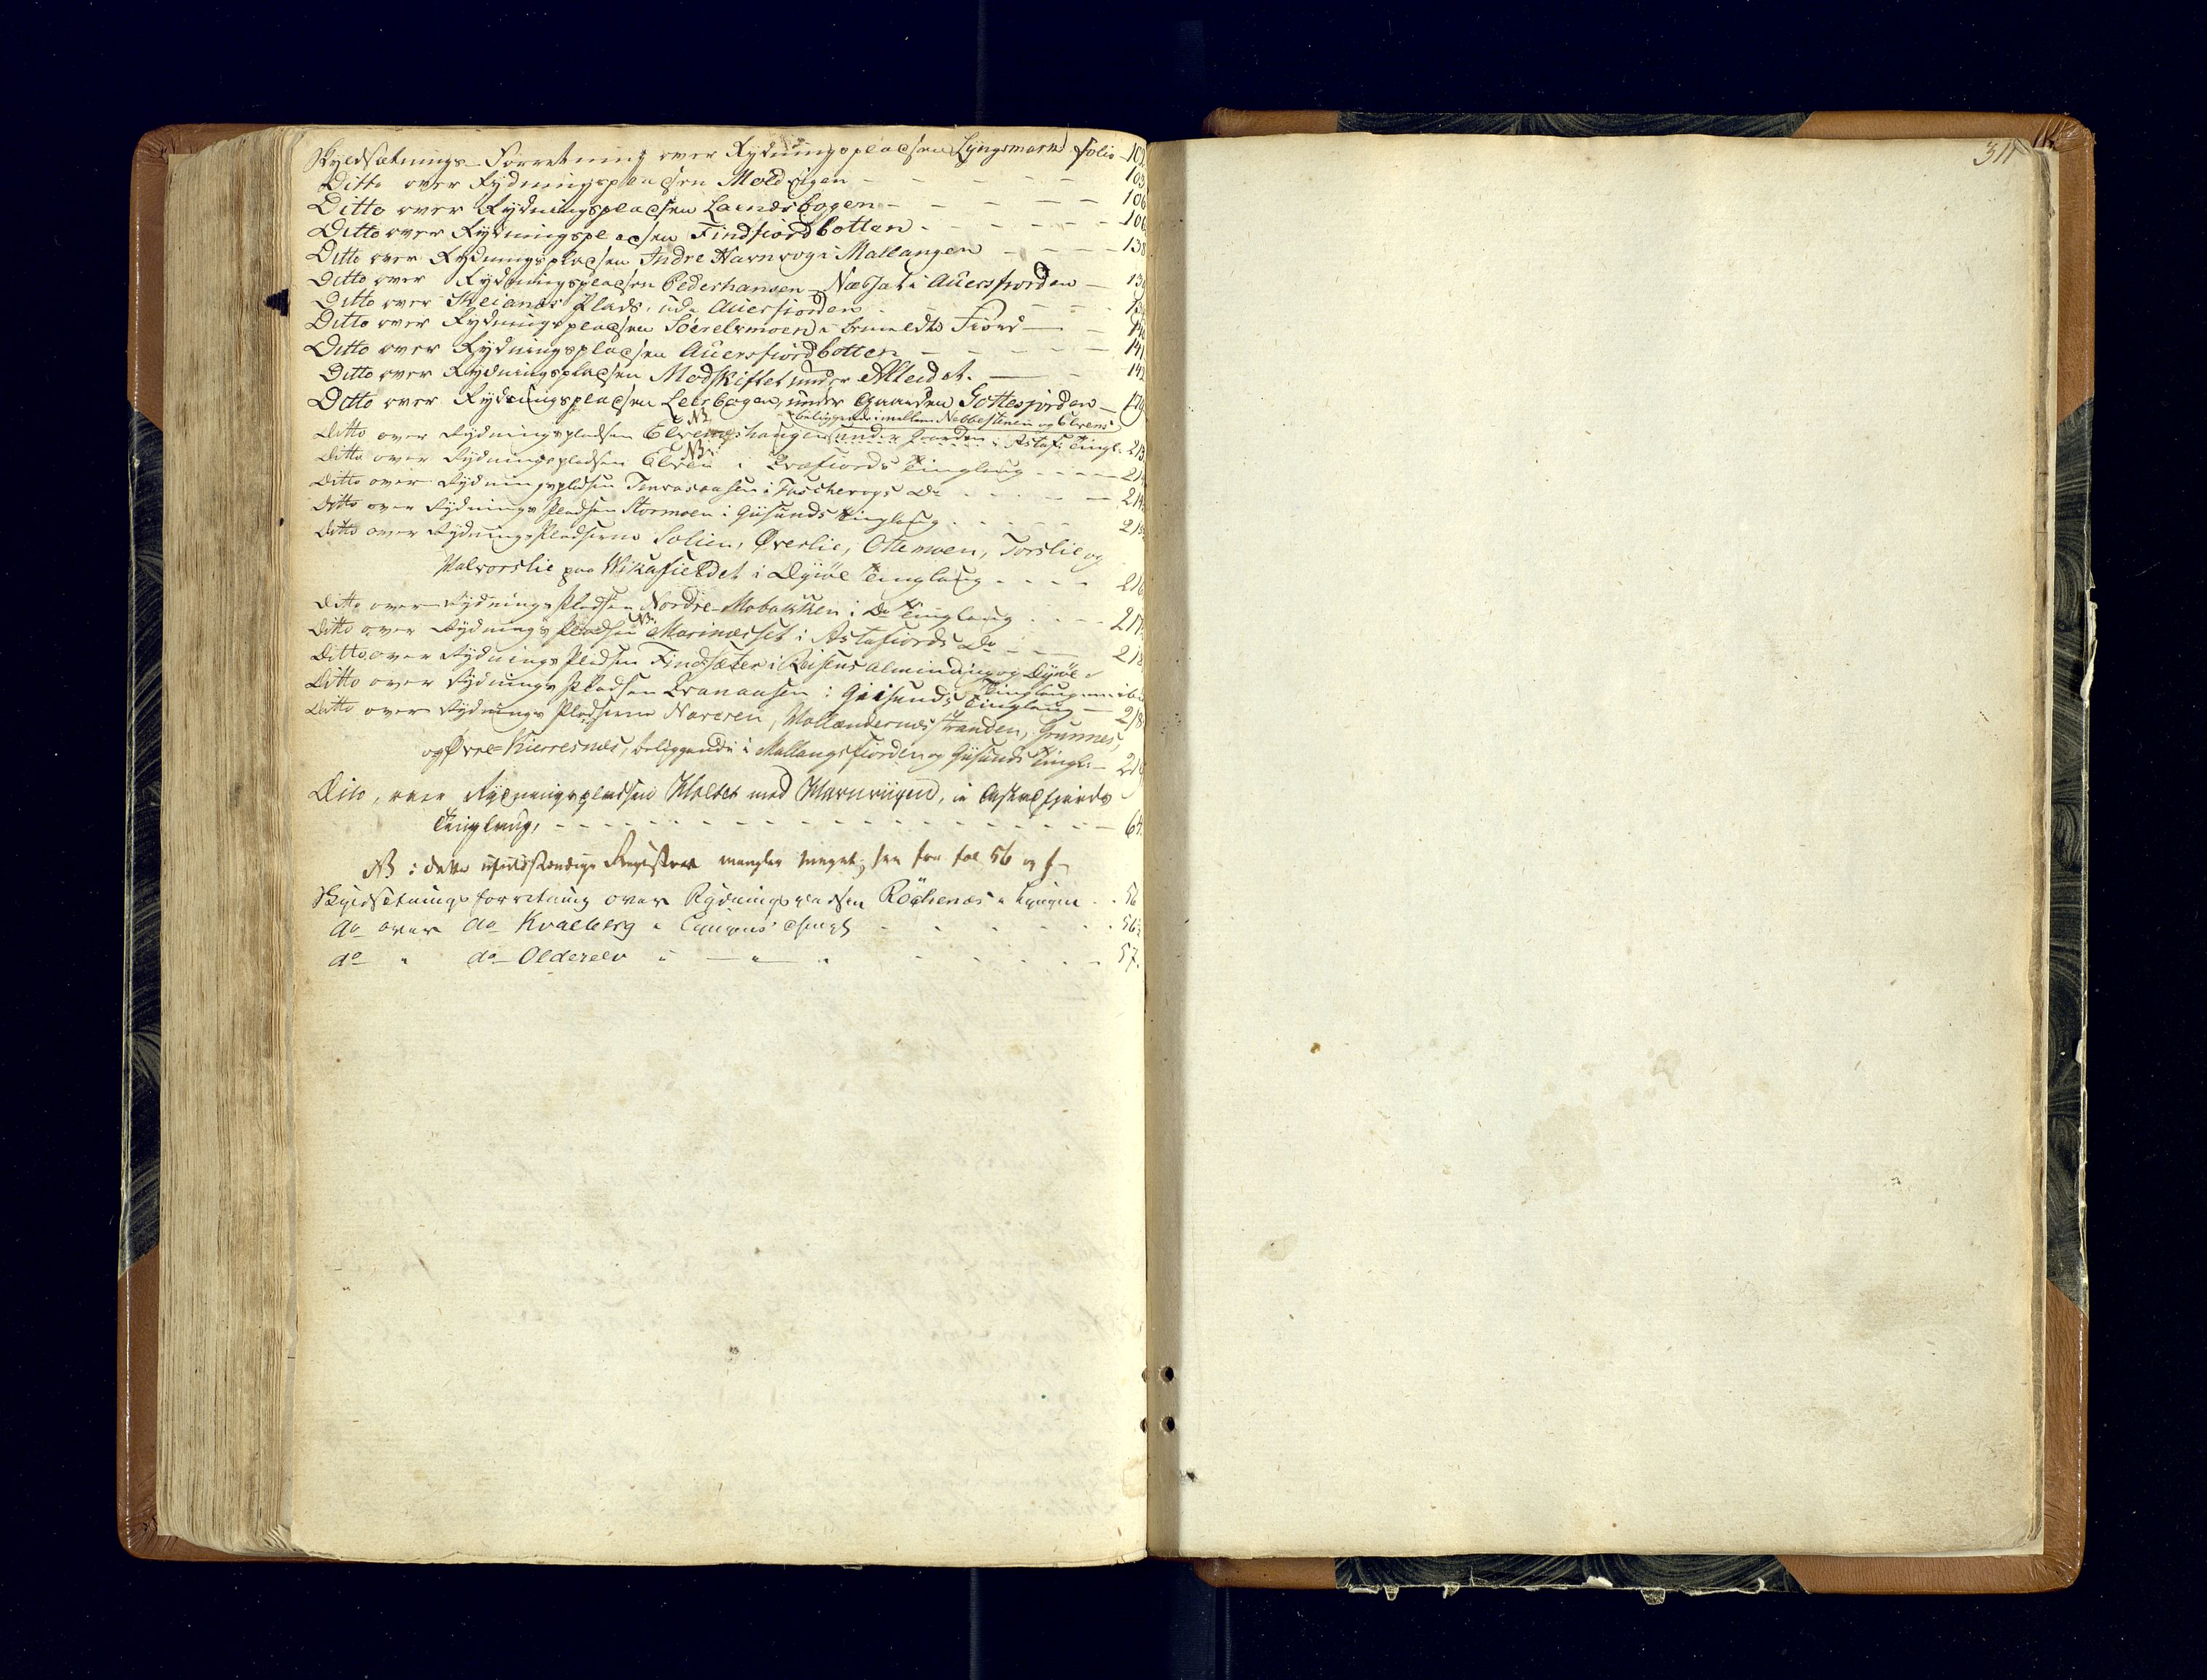 Skyldsætnings-Forretning over Rydningspladsen Lyngsmark folio 102
Ditto over Rydningspladsen Moldvigen - - - - - 103
Ditto over Rydningspladsen Lanesbogen - - - - 106
Ditto over Rydningspladsen Findfiordbotten - - - - 106
Ditto over Rydningspladsen Indre Navnvog i Mallangen - - - 138
Ditto over Rydningspladsen Pederhansen-Næsset i Auersfiorden - 13
Ditto over Plads, Auersfiorden - - -
Ditto over Rydningspladsen i bemeldte Fiord - - 140
Ditto over Rydningspladsen Auersfiordbotten - - - - - 141
Ditto over Rydningspladsen Modskiftet under - - 142
Ditto over Rydningspladsen Leerbogen, under Gaarden Gottesjorden - 179
beliggende imellem Nebbesteinen og Elvens
Ditto over Rydningspladsen under Gaarden i Astaf: Tingl: 213
Ditto over Rydningspladsen Elven i Qvæfiords Tinglaug - - - - 21
Ditto over Rydningspladsen i Do - - - - - 214
Ditto over Rydnings Pladsen Stormoen i Giisunds Tinglaug - - - - 215
Ditto over Rydnings Pladserne Solien, Øverlie, Ottemoen, Torslie og
Halvorslie paa Wikafieldet i Dyrøe Tinglaug - - - - 216
Ditto over Rydnings Pladsen Nordre-Mobakken i Do Tinglaug - - - - 217
Ditto over Rydnings Pladsen Marinæsset i Astafiords Do - - - 218
Ditto over Rydnings Pladsen Findsæter i Reisens Alminding og Dyrøe
Tinglaug
Ditto over Rydnings Pladsen Qvanaasen i Giisunds Tinglaug - 218
Ditto over Rydnings Pladserne Naveren, Hollændernæs Stranden, Grunnes,
og Øvre-Kierresnæs, beliggende i Mallangsfiorden og Giisunds Tingl: - 21
Dito, over Rydningspladsen Holtet med Havnvigen, i Astafjords
Tinglaug, - - - - - - - - - 64.
NB: i dette ufuldstændige Register mangler meget, see fra fol 56 og f-
Skyldsætningsforretning over Rydningspladsen Röckenæs i Lyngen - - 56
do over do Kvalberg i Lyngens Thingl - - - - 56½
do " do Olderelv " - " - " - - - - 57.
311